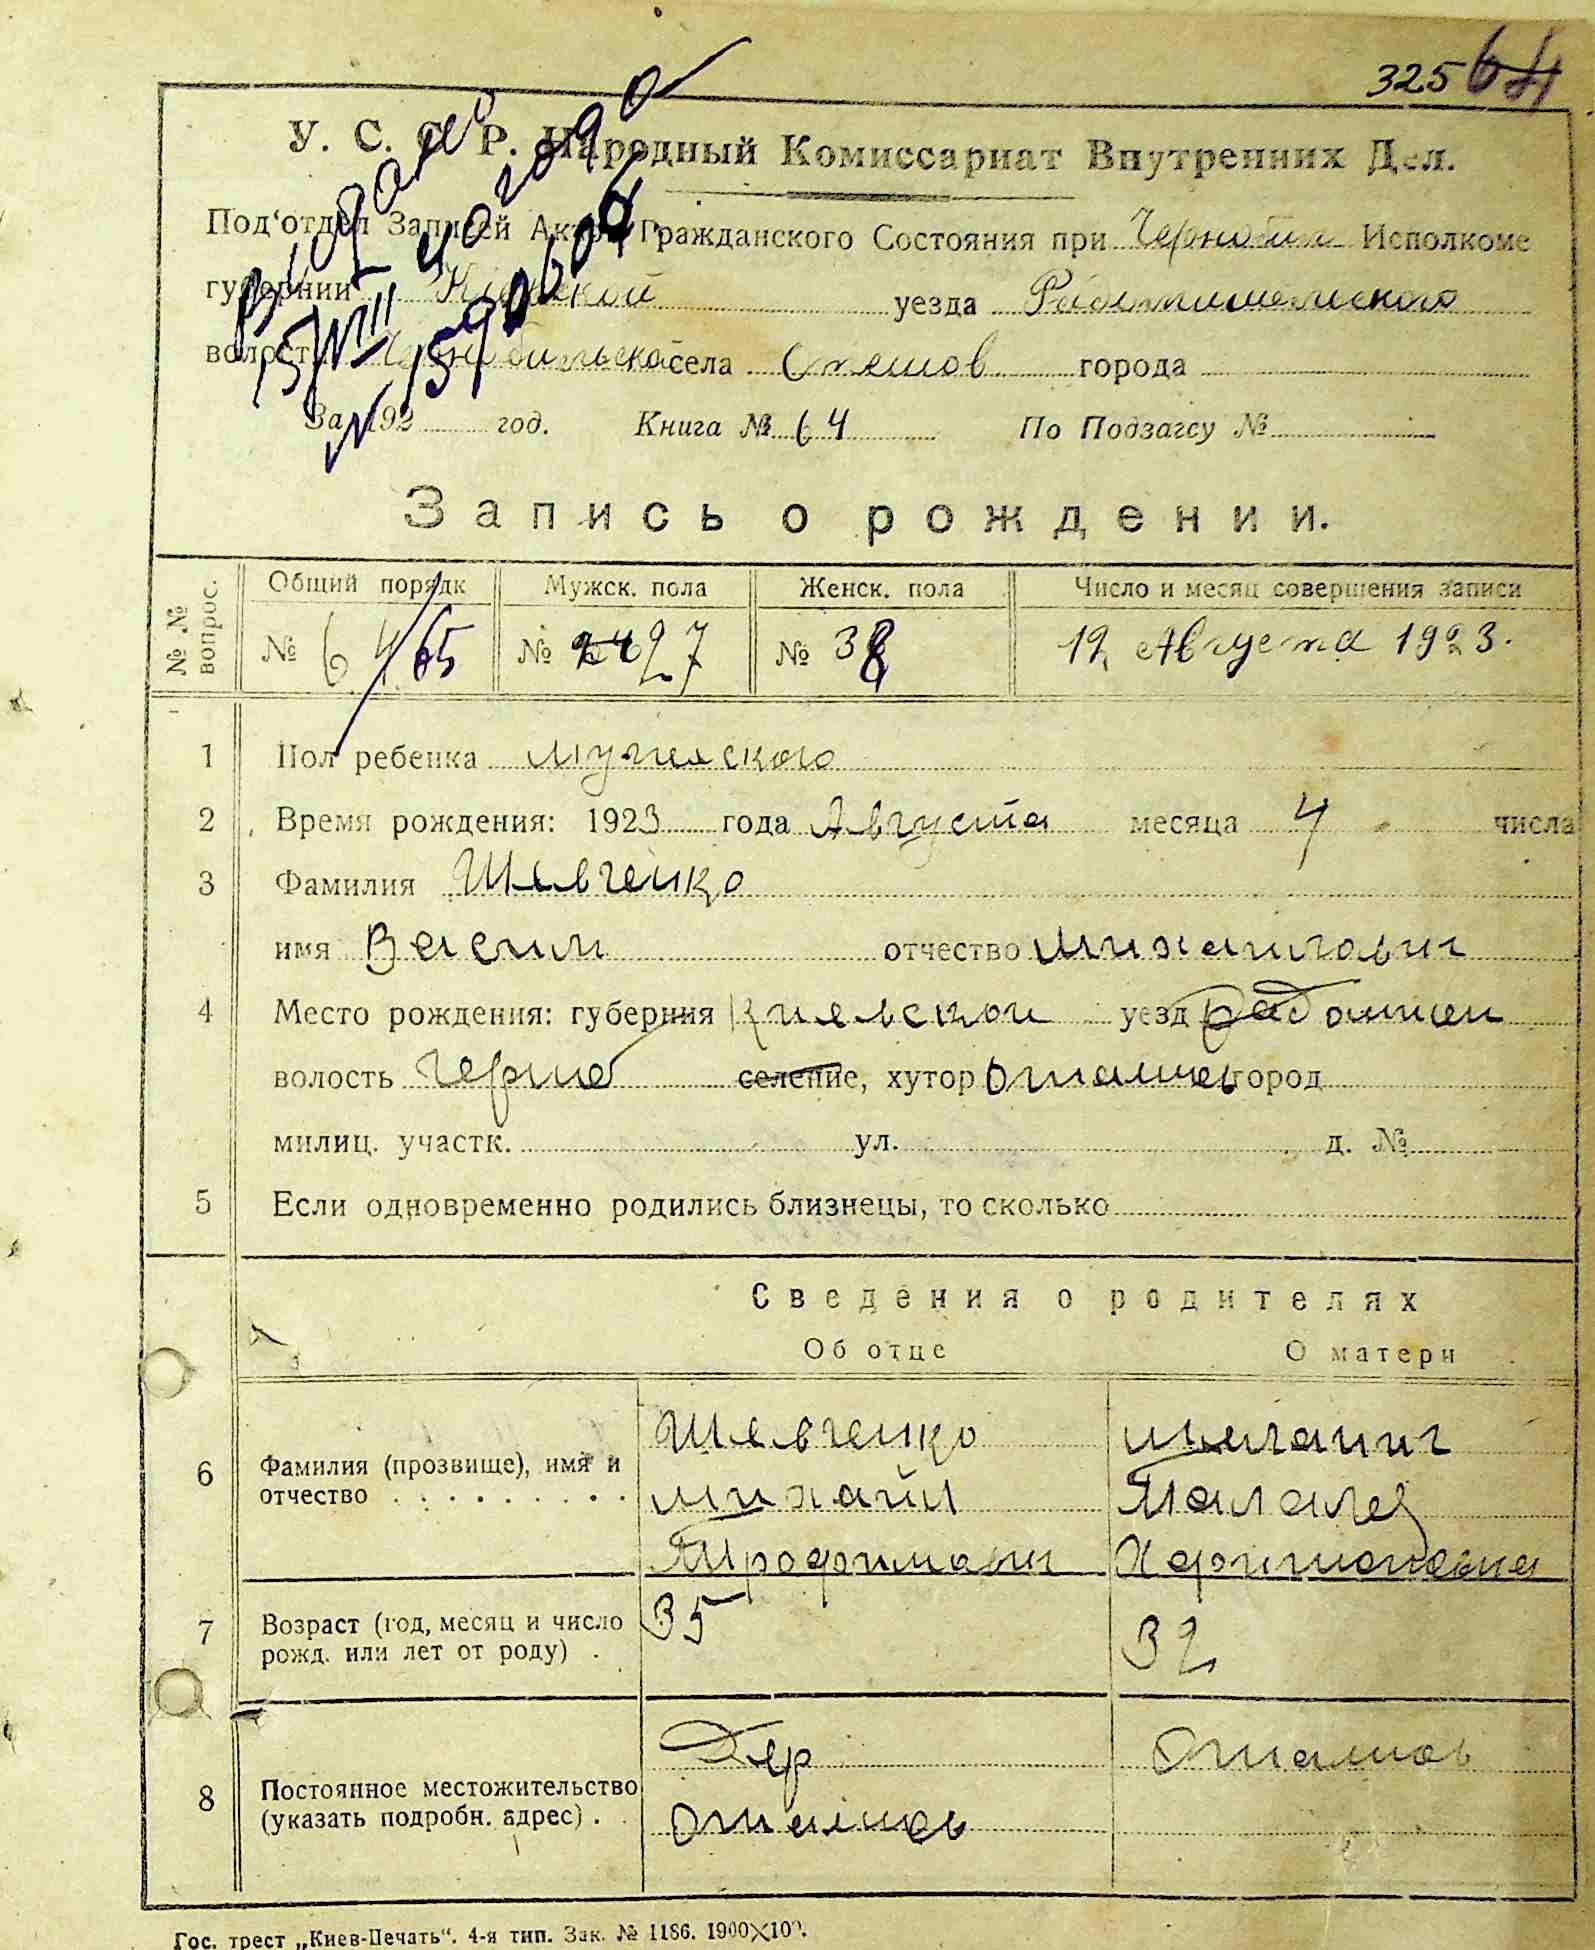 325 64
У. С. С. Р. Народный Комиссариат Внутренних Дел.
Под‘отдел Записей Актов Гражданского Состояния при Исполкоме
губернии Киевской уезда Радомышельского
волости села города
За 192 год. Книга № 64 По Подзагсу №
Запись о рождении.
№ № вопрос. Общий порядк Мужск. пола Женск. пола Число и месяц совершения записи
№ 64 65 № 24 27 № 38 12 Августа 1923.
1 Пол ребенка мужеского
2 Время рождения: 1923 года Августа месяца 4 числа
3 Фамилия Шевченко
имя отчество Михайлович
4 Место рождения: губерния Киевской уезд Радомишел
волость Черноб селение, хутор город
милиц. участк. ул. д. №
5 Если одновременно родились близнецы, то сколько
Сведения о родителях
Об отце О матери
6 Фамилия (прозвище), имя и отчество Шевченко
Михайл
Трофимович
7 Возраст (год, месяц и число рожд. или лет от роду) 35 32
8 Постоянное местожительство (указать подробн. адрес) Дер
Гос. трест „Киев-Печать“. 4-я тип. Зак. № 1186. 1900×100.